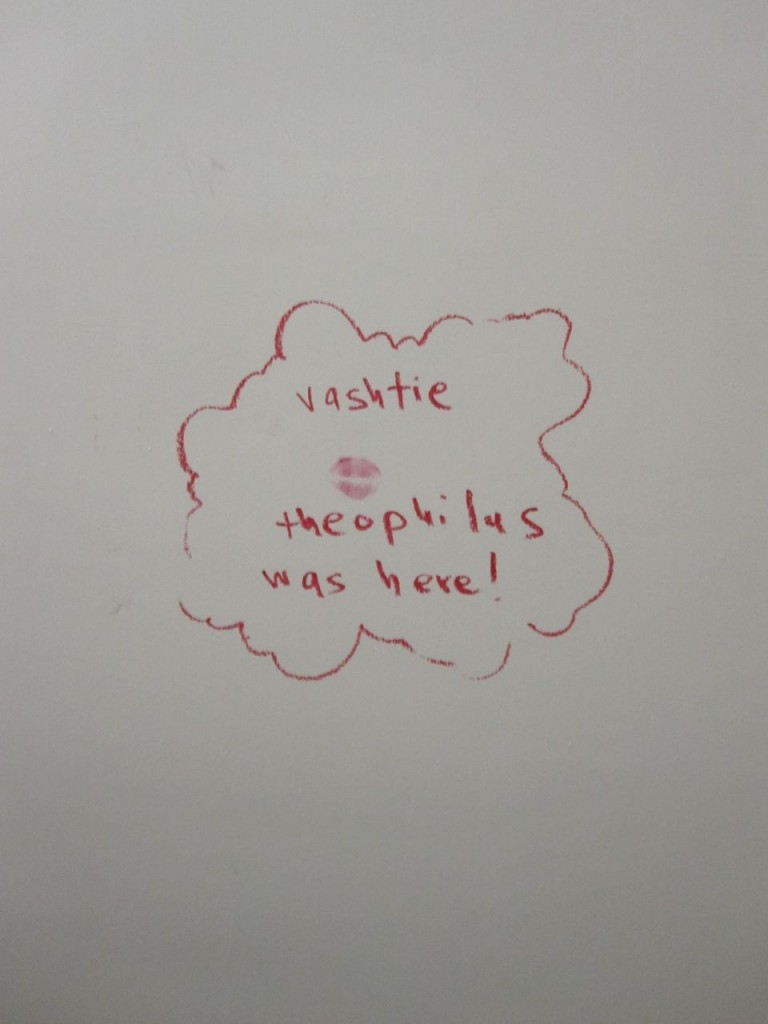 vashtie
theophilus
was here!